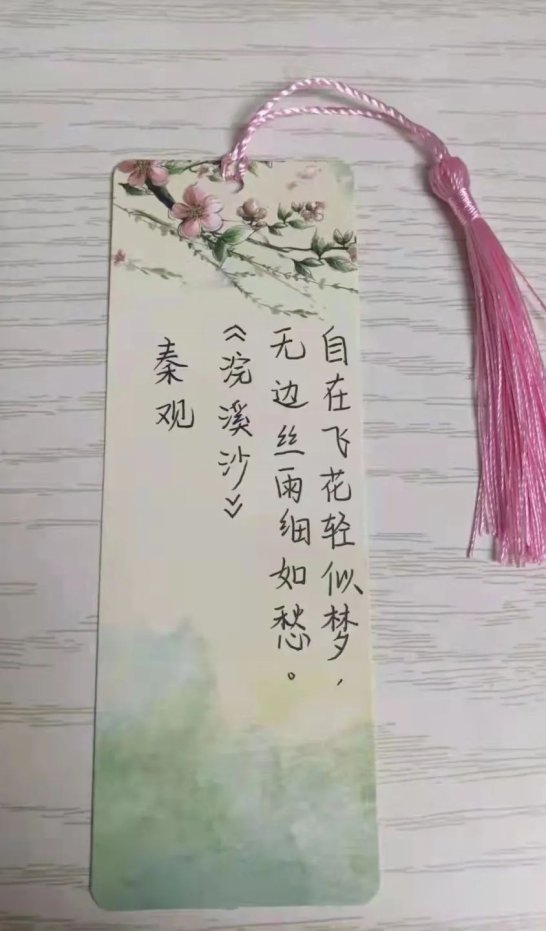 自在飞花轻似梦，
无边丝雨细如愁。
《浣溪沙》
秦观